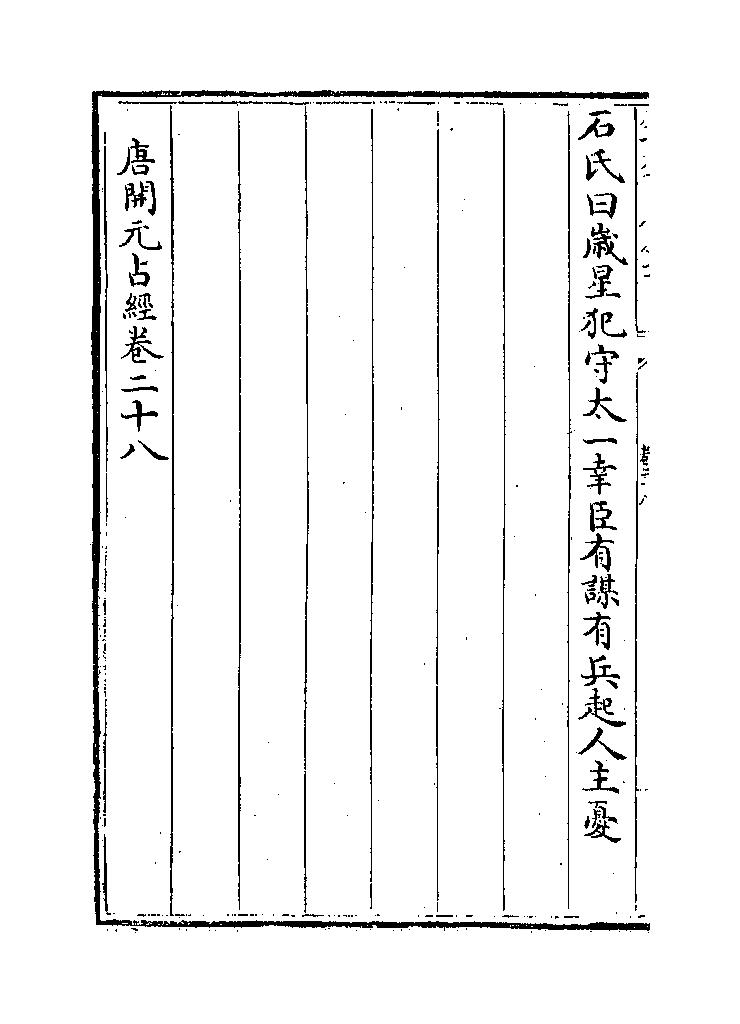 石氏曰歲星犯守太一幸臣有謀有兵起人主憂
唐開元占經卷二十八